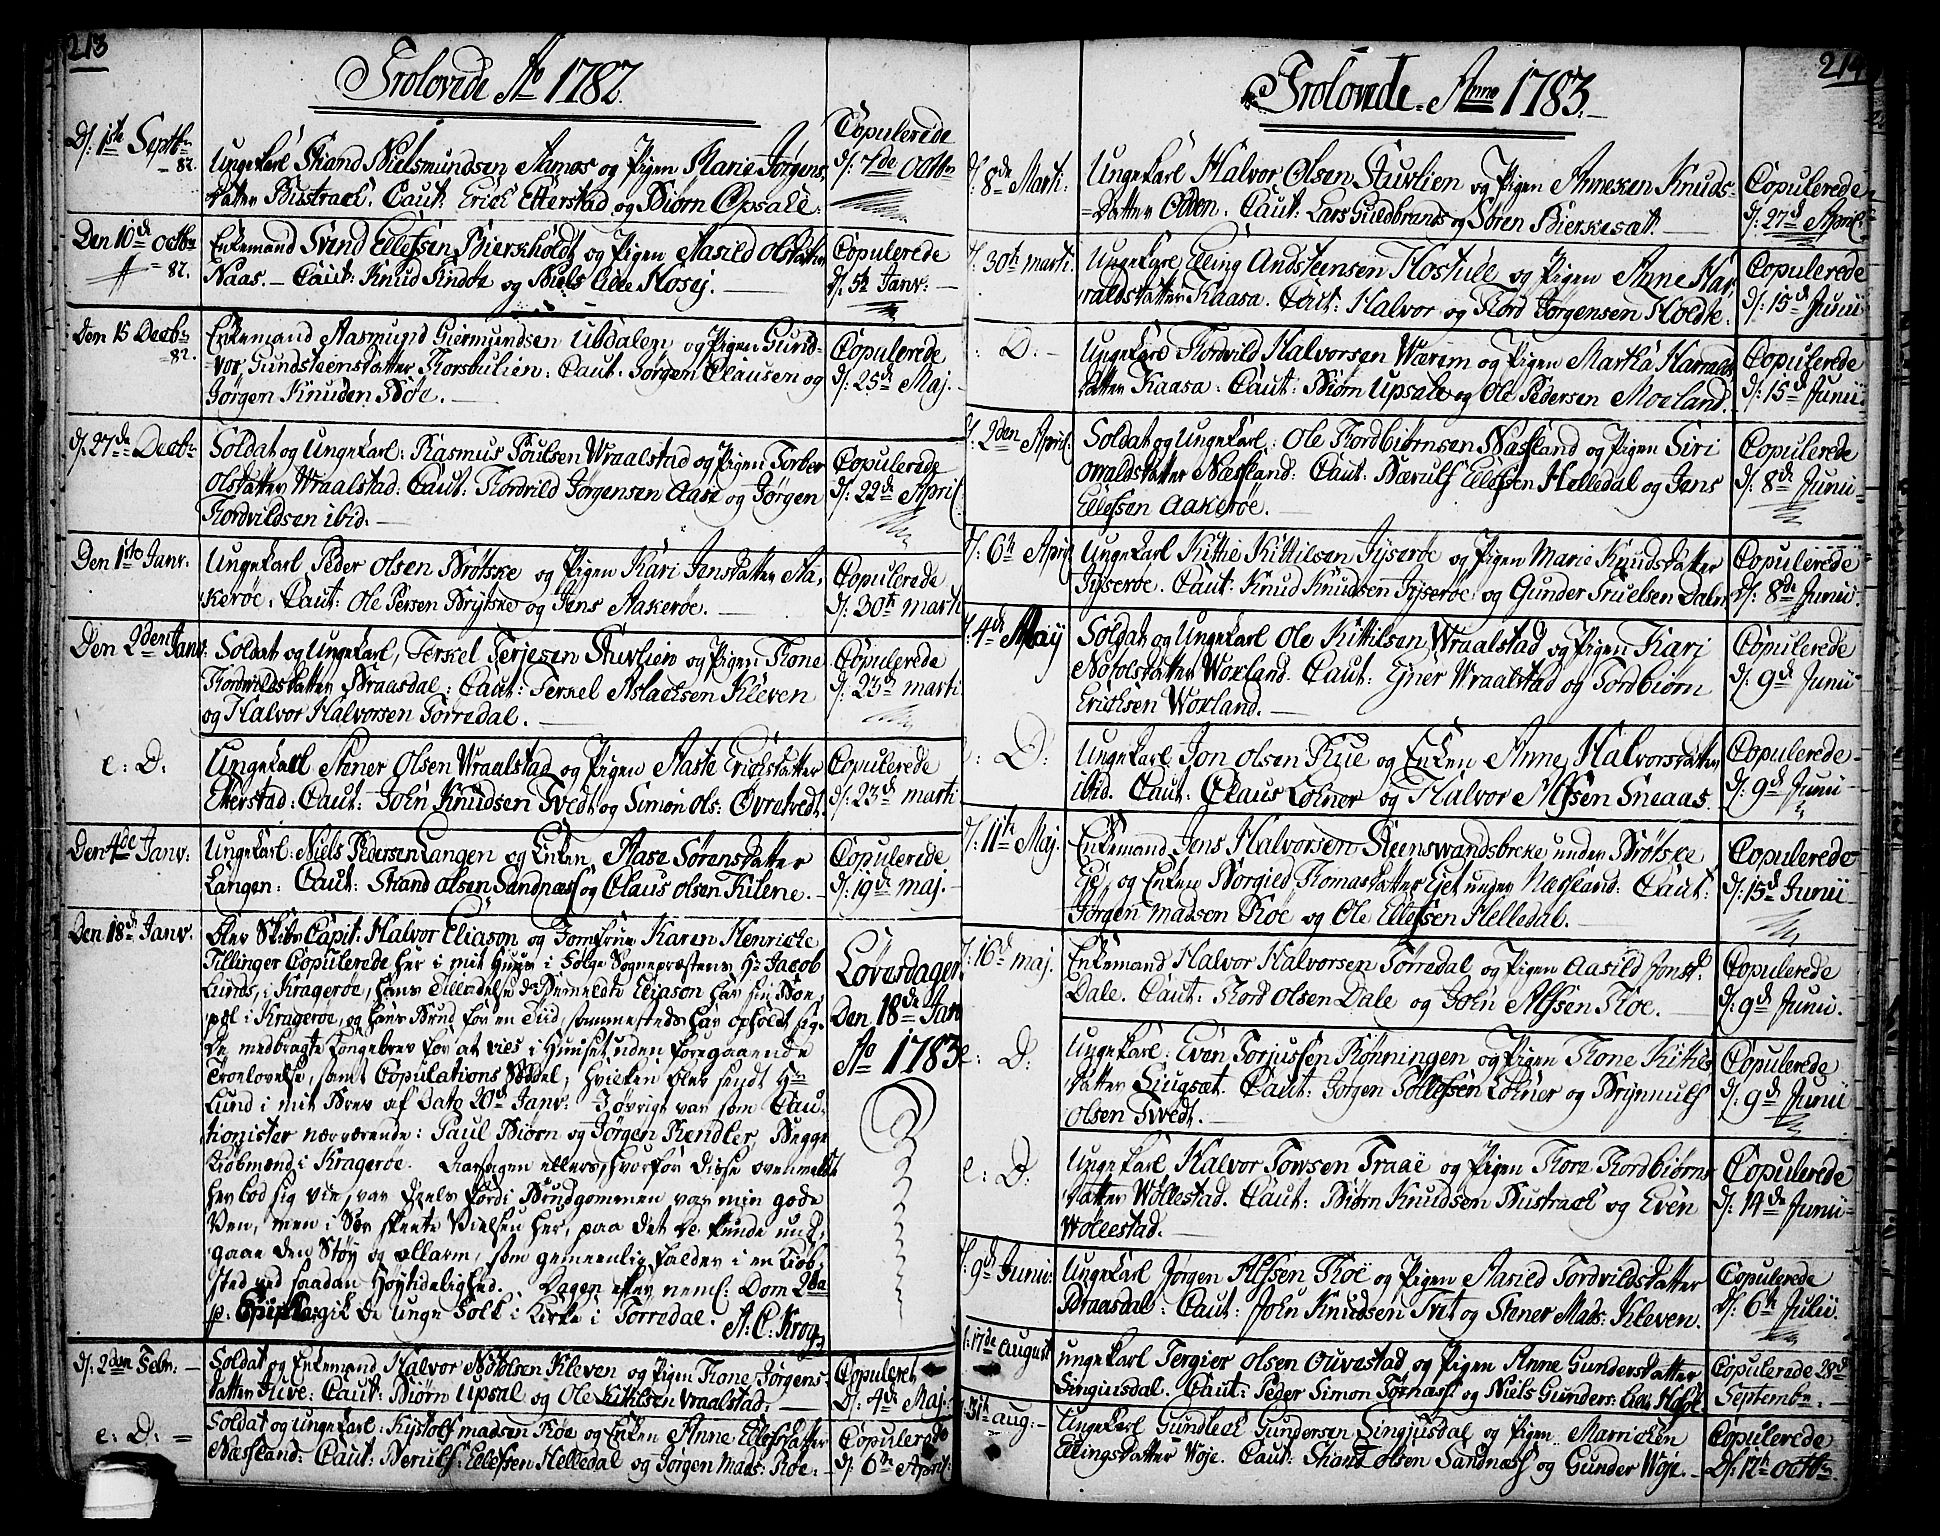 213
Trolovede Ao 1782.
D/: 1ste Septbr
- 82.
Ungekarl Strand Nielsmundsen Aamos og Pigen Marie Jørgens,
datter Bustrack. Caut: Erick Etterstad og Biørn Opsale:
Copulerede
d/: 7de Octbr
Den 10de Octbr
- 82.
Enkemand Svend Ellefsen Bierkholdt og Pigen Aasild Olsdatter
Naas. - Caut: Knud Kindte og Niels Lille Hosej.
Copulerede
d/: 5te Janv: -
Den 15 Decbr
82.
Enkemand Aasmund Giermundsen Ubdalen og Pigen Gund-
vor Gundsteensdatter Torsbulien: Caut. Jørgen Clausen og
Jørgen Knudsen Bøe. -
Copulerede
d/: 25de Maj. -
d/: 27de Decbr
Soldat og Ungekarl: Rasmus Poulsen Wraalstad og Pigen Torber
Olsdatter Wraalstad: Caut: Tordvild Jørgensen Aase og Jørgen
Tordvildsen ibid. -
Copulerede
d/: 22de April
Den 1ste Janv.
Ungekarl Peder Olsen Brøtske og Pigen Kari Jansdatter Aa,
kerøe. Caut: Ole Persen Brytske og Jens Aakerøe. -
Copulerede
d/: 30te marti
Den 2den Janv:
Soldat og Ungekarl, Terkel Terjesen Sturlien og Pigen Tone
Tordvildsdatter Braasdal: Caut: Terkel Aslacksen Kleven
og Halvor Halvorsen Torredal. -
Copulerede
d/: 23de marti
e: D:
Ungekarl Stener Olsen Wraalstad og Pigen Aaste Erichsdatter
Etterstad: Caut: John Knudsen Tvedt og Simon Ols: Øvretvedt.
Copulerede
d/: 23de marti
Den 4de Janv:
Ungekarl: Niels Pedersen Langen og Enken Aase Sørensdatter
Langen: Caut: Strand Olsen Sandnæss og Claus Olsen Kilene. -
Copulerede
d/: 19de maj. -
Den 18de Janv.
blev Skibs Capit: Halvor Eliason og Jomfrue Karen Henricke
Tillinger Copulerede her i mit Huus i Følge Sognepræstens Hr Jacob
Lunds, i Kragerøe, hans Tilladelse da Bemeldte Eliason har sin Boe,
pæl i Kragerøe, og hans Brud for en Tiid, sammesteds har opholdt sig.
De medbragte Kongebrev for at vies i Huuset uden foregaaende
Troelovelse, samt Copulations Seddel, hvilken blev sendt Hr
Lund i mit Brev af Dato 20de Janv: I øvrigt var som Cau,
tionister nærværende: Paul Biørn og Jørgen Rendler, Begge
Kiøbmænd i Kragerøe. Aarsagen ellers, hvorfor disse ovenmeldte
her lod sig vie, var deels fordi Brudgommen var min gode
Ven, men i Sær skeete Vielsen her, paa det De kunde und,
gaae den Støy og allarm, som gemeenlig falder i en Kiøb,
sted ved saadan Høytidelighed. Dagen efter neml: Dom 2da
p. Epiph: gik De unge Folk i Kirke i Torredal. A. C: Krog
Løverdagen
Den 18de Jan
Ao 1783
d/: 2den Febr: -
Soldat og Enkemand Halvor Nøblsen Kleven og Pigen Tone Jørgens-
datter Juve: Caut: Biørn Upsal og Ole Kittilsen Vraalstad: -
Copuleret
d/: 4de Maj:
e: D: =
Soldat og Ungekarl: Kistolf madsen Røe og Enken Anne Ellefsdatter
Næsland: Caut: Berulf Ellefsen Helledal og Jørgen Mads: Roe: -
Copulerede
d/: 6te April:
214
Trolovede. Anno 1783. -
d/: 8de Marti:
Ungekarl Halvor Olsen Sturlien og Pigen Anneken Knuds-
=datter Odden. Caut: Lars Guldbrands og Søren Bierkesæt. -
Copulerede
d/: 27de April
d/: 30te marti
Ungekarl Elling Andsteensen Flostuee og Pigen Anne Har,
raldsdatter Kaasa. Caut: Halvor og Tord Jørgensen Holdte:
Copulerede
d/: 15de Junii
: D: -
Ungekarl Tordvild Halvorsen Wærim og Pigen Martha Harralds
datter Kaasa: Caut: Biørn Upsale og Ole Pedersen Moeland.
Copulerede
d/: 15de Junii
d/: 2den April
Soldat og Ungekarl: Ole Tordbiørnsen Næsland og Pigen Siri
Onaldsdatter Næsland: Caut: Bærulf Ellefsen Helledal og Jens
Ellefsen Aakerøe.
Copulerede
d/: 8de Junii
d/: 6te April
Ungekarl Kittil Kittilsen Jyserøe og Pigen Marie Knudsdatter
Jyserøe. Caut: Knud Knudsen Jyserøe og Gunder Truelsen Dalen
Copulerede
d/: 8de Junii.
d/: 4de Maij
Soldat og Ungekarl Ole Kittilsen Wraalstad og Pigen Kari
Nofolsdatter Woxland. Caut: Ejner Wraalstad og Tordbiørn
Erichsen Woxland. -
Copulerede
d/: 9de Junii
: D:
Ungekarl Jon Olsen Rue og Enken Anne Halvorsdatter
ibid. Caut: Claus Lokner og Halvor Alfsen Sneaas.
Copulerede
d/: 9de Junii
d/: 11te Maj.
Enkemand Jens Halvorsen Steenswandsbreke under Brøtske
Ej, og Enken Borgild Tomasdatter Ejet under Næsland: Caut:
Jørgen Madsen Røe og Ole Ellefsen Helledal. -
Copulerede
d/: 15de Junii
d/: 16de maj.
Enkemand Halvor Halvorsen Torredal og Pigen Aasild Jonsd.
Dale. Caut: Tord Olsen Dale og John Alfsen Roe. -
Copulerede
d/: 9de Junii.
e: D:
Ungekarl: Even Torjussen Rønningen og Pigen Tone Kittils
datter Liugsæt. Caut: Jørgen Tollefsen Lokner og Brynnulf
Olsen Tvedt. -
Copulerede
d/: 9de Junii
e: D:
Ungekarl Halvor Towsen Traae og Pigen Tora Tordbiørns
datter Wollestad. Caut: Biørn Knudsen Bustrack og Even
Wollestad. -
Copulerede
d/: 14de Junii
d/: 9de Junii:
Ungekarl Jørgen Alfsen Roe og Pigen Aasild Tordvildsdatter
Braasdal: Caut: John Knudsen Tvet og Stener Mads: Kleven.
Copulerede
d/: 6te Julii.
d/: 17de august
ungekarl Tergier Olsen Ouvestad og Pigen Anne Gundersdatter
Singiusdal. Caut: Peder Simon Tørnæss og Niels Gunders:
Copulerede 28de
Septembr. -
d/: 31te aug: -
Ungekarl Gundleck Gundersen Singjusdal og Pigen Marricken
Ellingsdatter Woje. Caut: Strand Olsen Sandnæss og Gunder Woje. -
Copulerede
d/: 12te Octbr